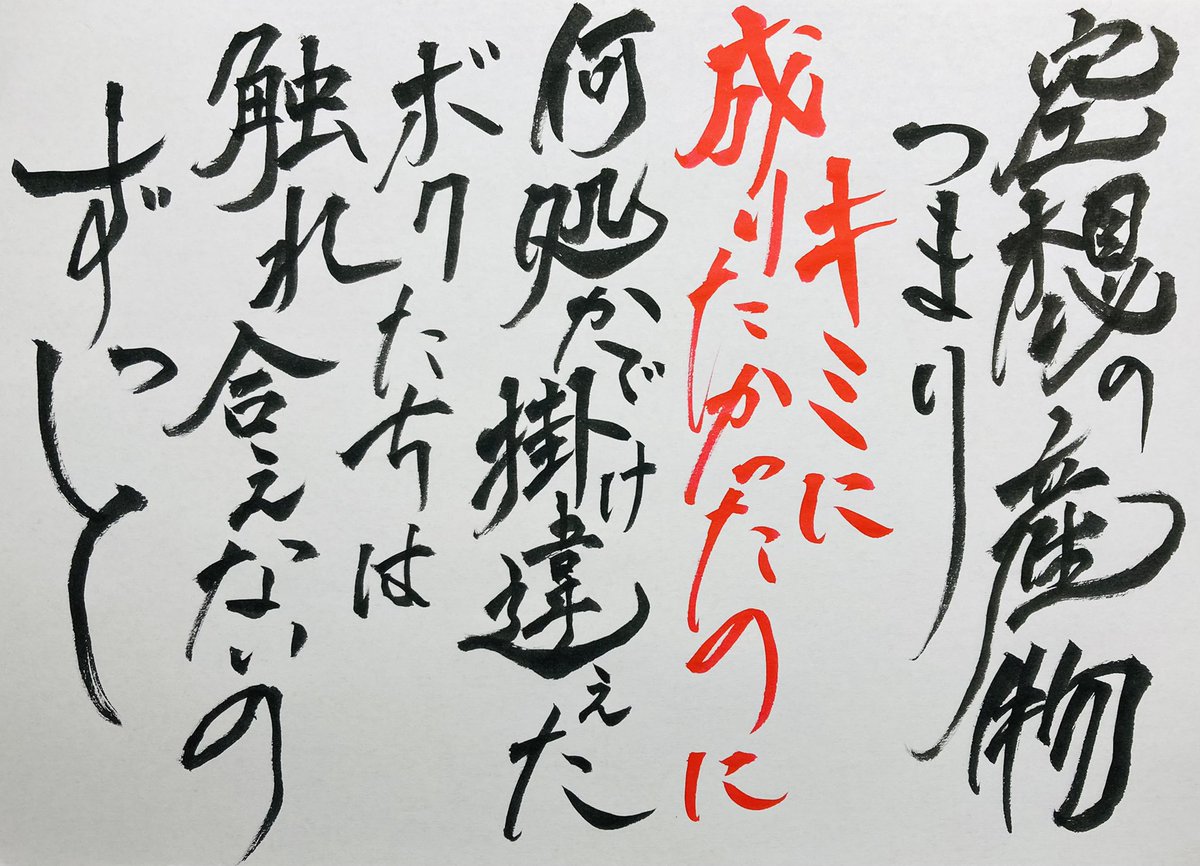 空想の産物
つまり
キミに
成りたかったのに
何処かで掛け違えた
ボクたちは
触れ合えないの
ずっと